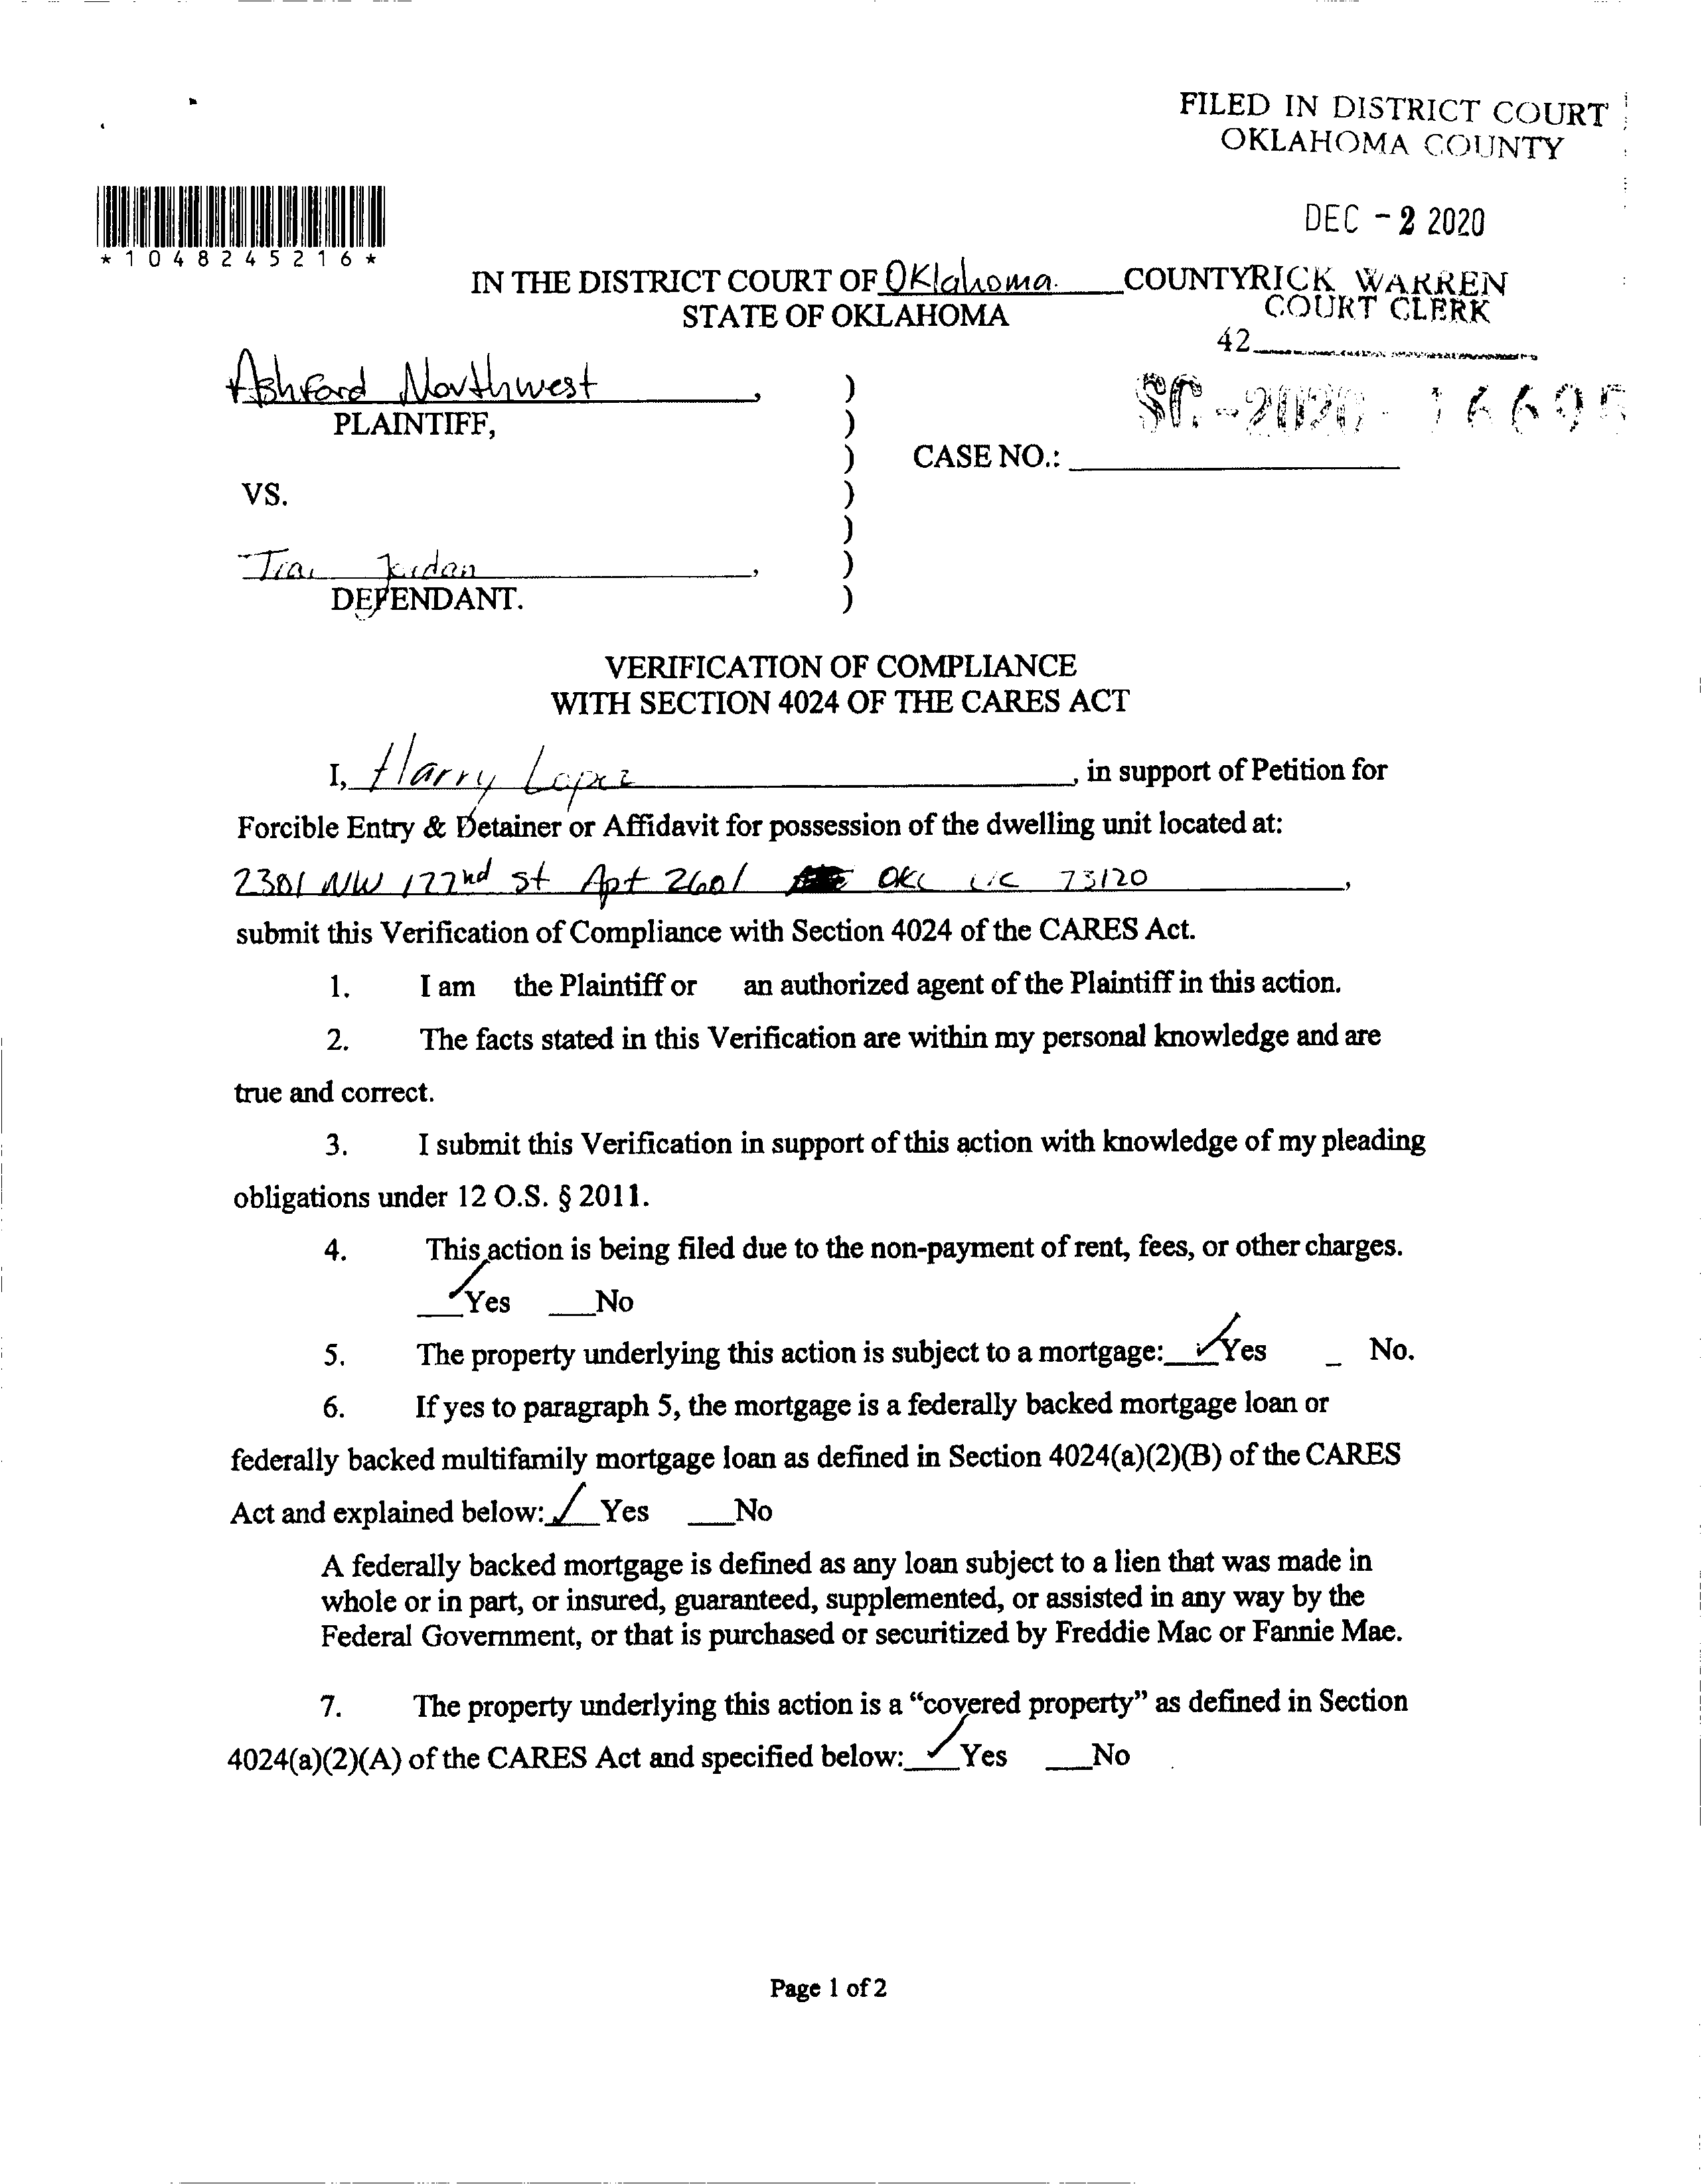 FILED IN DISTRICT COURT
OKLAHOMA COUNTY
DEC - 2 2020
*1048245216*
IN THE DISTRICT COURT OF Oklahoma COUNTY
STATE OF OKLAHOMA
RICK WARREN
COURT CLERK
42
Ashford Northwest,
PLAINTIFF,
SC-2020-16695
CASE NO.:
VS.
DEFENDANT.
VERIFICATION OF COMPLIANCE
WITH SECTION 4024 OF THE CARES ACT
I, Harry Lopez, in support of Petition for
Forcible Entry & Detainer or Affidavit for possession of the dwelling unit located at:
2301 NW 122nd st Apt 2601 OKC 73120,
submit this Verification of Compliance with Section 4024 of the CARES Act.
1. I am the Plaintiff or an authorized agent of the Plaintiff in this action.
2. The facts stated in this Verification are within my personal knowledge and are
true and correct.
3. I submit this Verification in support of this action with knowledge of my pleading
obligations under 12 O.S. § 2011.
4. This action is being filed due to the non-payment of rent, fees, or other charges.
✓ Yes __No
5. The property underlying this action is subject to a mortgage: ✓ Yes _ No.
6. If yes to paragraph 5, the mortgage is a federally backed mortgage loan or
federally backed multifamily mortgage loan as defined in Section 4024(a)(2)(B) of the CARES
Act and explained below: ✓ Yes __No
A federally backed mortgage is defined as any loan subject to a lien that was made in
whole or in part, or insured, guaranteed, supplemented, or assisted in any way by the
Federal Government, or that is purchased or securitized by Freddie Mac or Fannie Mae.
7. The property underlying this action is a “covered property” as defined in Section
4024(a)(2)(A) of the CARES Act and specified below: ✓ Yes __No
Page 1 of 2